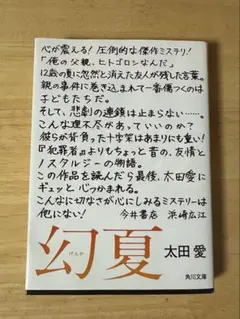 心が震える!圧倒的な傑作ミステリ!
「俺の父親、ヒトゴロシなんだ」
12歳の夏に忽然と消えた友人が残した言葉。
親の事件に巻き込まれて一番傷つくのは
子どもたちだ。
そして、悲劇の連鎖は止まらない……。
こんな理不尽があっていいのか?
彼らが背負った十字架はあまりにも重い!
『犯罪者』よりもちょっと昔の、友情と
ノスタルジーの物語。
この作品を読んだら最後、太田愛に
ギュッと心つかまれる。
こんなに切なさが心にしみるミステリーは
他にない!
今井書店 浜崎広江
幻夏
げんか
太田 愛
角川文庫